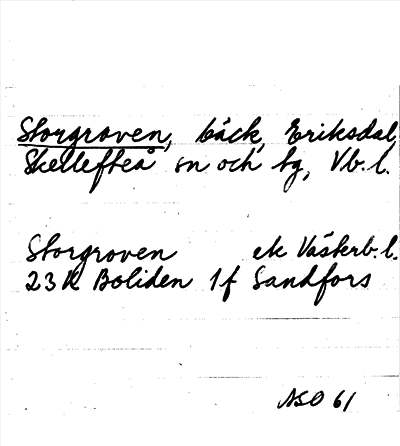 Storgroven, bäck, Eriksdal,
Skellefteå sn och tg, Vb. l.
Storgroven ek Västerb. l.
23 K Boliden 1 f Sandfors
NSO 61